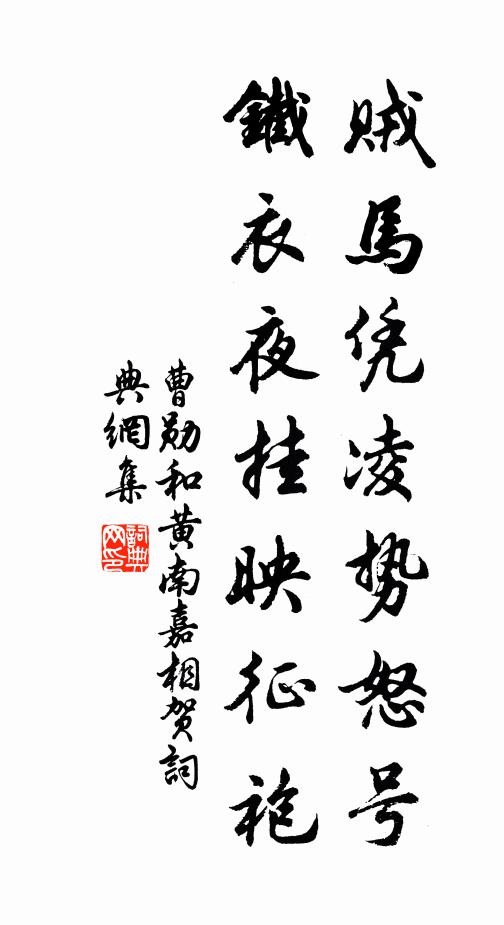 贼馬凭凌势怒号
鐵衣夜挂映征袍
曹勋和黄南嘉相贺詞
典網集
詞典
网印